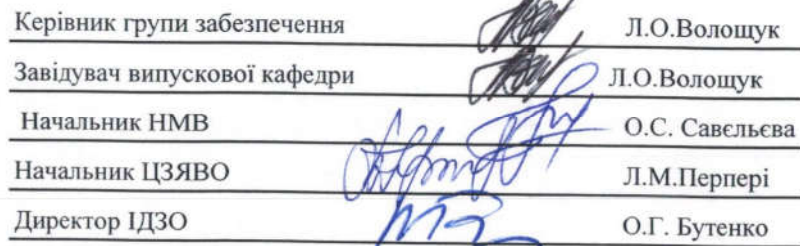 Керівник групи забезпечення Л.О.Волощук
Завідувач випускової кафедри Л.О.Волощук
Начальник НМВ О.С. Савєльєва
Начальник ЦЗЯВО Л.М.Перпері
Директор ІДЗО О.Г. Бутенко